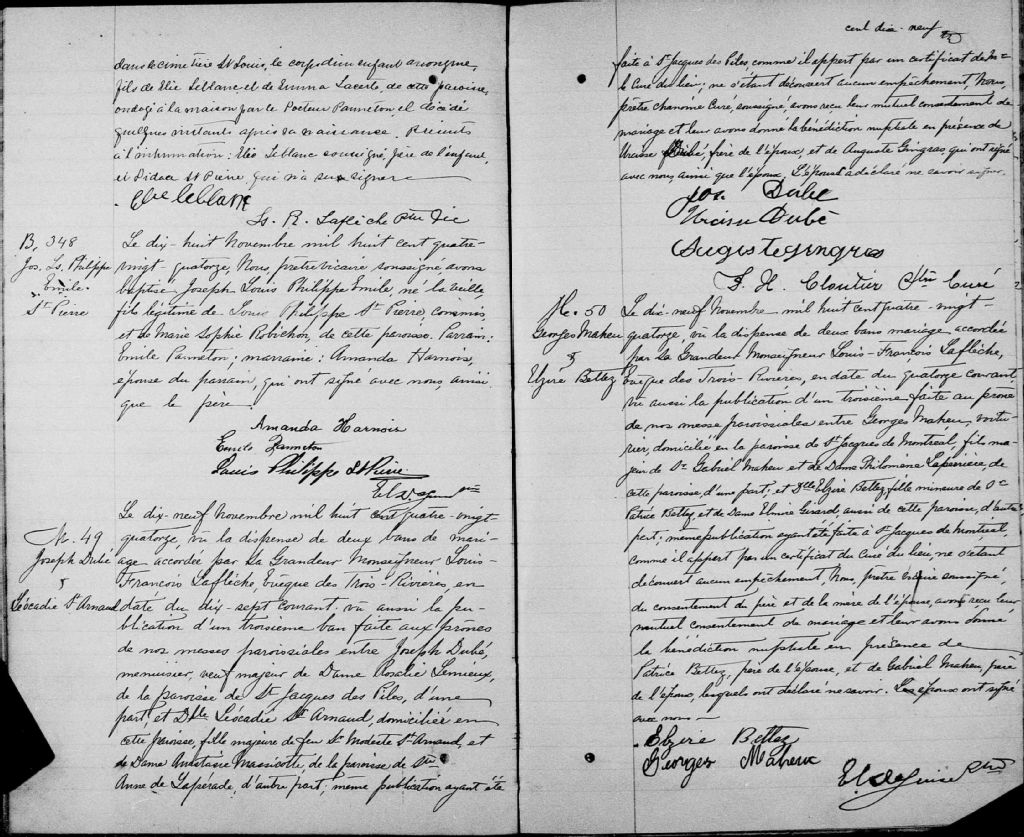 dans le cimetière St Louis, le corps d'un enfant anonyme,
fils de Elie Leblanc et de Emma Lacerte, de cette paroisse,
ondoyé à la maison par le Docteur Panneton et décédé
quelques instants après sa naissance. Présents
à l'inhumation: Elie Leblanc soussigné, père de l'enfant,
et Didace St Pierre, qui n'a su signer
Elie leblanc
Ls. R. Laflèche Ptre Vic
B. 348
Jos. Ls. Philippe
Emile
St Pierre
Le dix-huit Novembre mil huit cent quatre-
vingt-quatorze, Nous, prêtre vicaire soussigné avons
baptisé Joseph Louis Philippe Emile né la veille,
fils légitime de Louis Philippe St Pierre, commis,
et de Marie Sophie Robichon, de cette paroisse. Parrain:
Emile Panneton; marraine: Amanda Harnois,
épouse du parrain, qui ont signé avec nous, ainsi
que le père.
Amanda Harnois
Emile Panneton
Louis Philippe St Pierre
M. 49
Joseph Dubé
&
Léocadie St Arnaud
Le dix-neuf Novembre mil huit cent quatre-vingt-
quatorze, vu la dispense de deux bans de mari-
age accordée par Sa Grandeur Monseigneur Louis-
François Laflèche Evêque des Trois-Rivières, en
date du dix-sept courant vu aussi la pu-
blication d'un troisième ban faite aux prônes
de nos messes paroissiales entre Joseph Dubé,
menuisier, veuf majeur de Dame Rosalie Lemieux,
de la paroisse de St Jacques des Piles, d'une
part; et Dlle Léocadie St Arnaud, domiciliée en
cette paroisse, fille majeure de feu Sr Modeste St Arnaud, et
de Dame Massicotte, de la paroisse de Ste
Anne de Lapérade, d'autre part; même publication ayant été
cent dix-neuf
faite à St Jacques des Piles, comme il appert par un certificat de Mr
le Curé du lieu; ne s'étant découvert aucun empêchement, Nous,
prêtre chanoine Curé, soussigné, avons reçu leur mutuel consentement de
mariage et leur avons donné la bénédiction nuptiale en présence de
Dubé, frère de l'époux, et de Auguste Gingras, qui ont signé
avec nous, ainsi que l'époux. L'épouse a déclaré ne savoir signer.
Jos. Dubé
Dubé
Auguste gingras
F. H. Cloutier Ptre Curé
M. 50
Georges Maheu
&
Elzire Bettez
Le dix-neuf Novembre mil huit cent quatre-vingt-
quatorze, vu la dispense de deux bans mariage accordée
par Sa Grandeur Monseigneur Louis-François Laflèche,
Evêque des Trois-Rivières, en date du quatorze courant,
vu aussi la publication d'un troisième faite au prône
de nos messe paroissiales entre Georges Maheu, voitu-
rier, domicilié en la paroisse de St Jacques de Montreal, fils ma-
jeur de Sr Gabriel Maheu et de Dame Philomène Laperrière, de
cette paroisse, d'une part; et Dlle Elzire Bettez, fille mineure de Sr
Patrice Bettez, et de Dame Elmire Girard, aussi de cette paroisse, d'autre
part; même publication ayant été faite à St Jacques de Montréal,
comme il appert par un certificat du Curé du lieu, ne s'étant
découvert aucun empêchement, Nous, prêtre vicaire soussigné,
du consentement du père et de la mère de l'épouse, avons reçu leur
mutuel consentement de mariage et leur avons donné
la bénédiction nuptiale en présence de
Patrice Bettez, père de l'épouse, et de Gabriel Maheu, père
de l'époux, lesquels ont déclaré ne savoir. Les époux ont signé
avec nous
Elzire Bettez
Georges Maheux